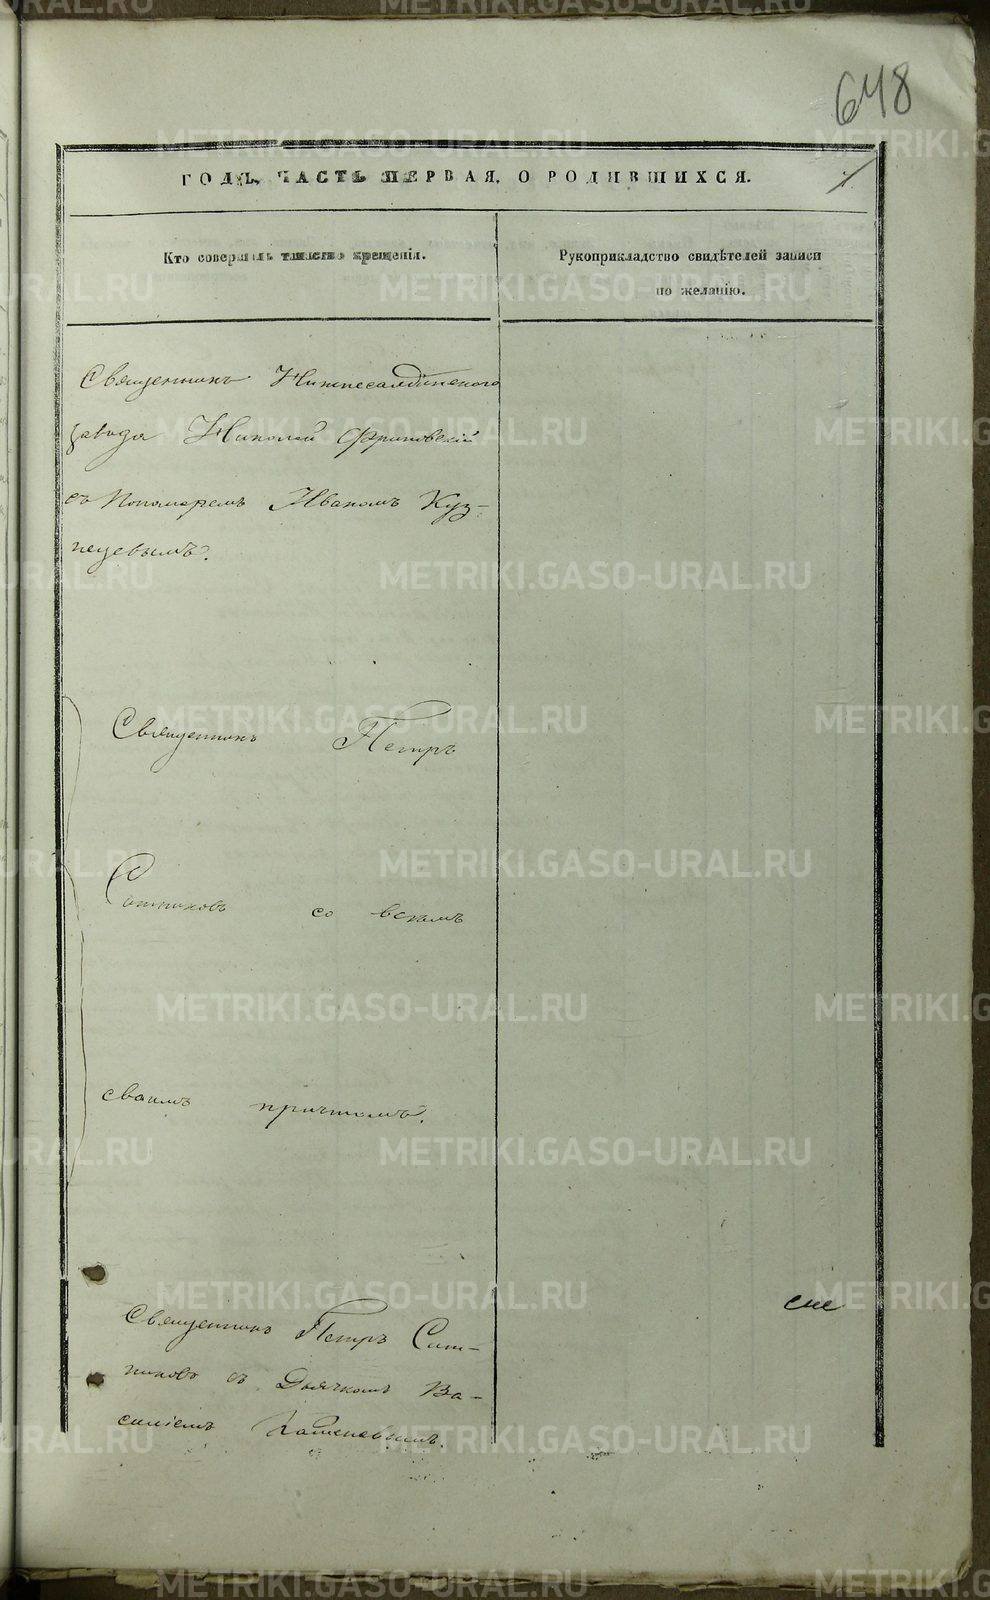 648
ГОДЪ, ЧАСТЬ ПЕРВАЯ, О РОДИВШИХСЯ.
1.
Кто совершалъ таинство крещенія.
Рукоприкладство свидѣтелей записи
по желанію.
Священникъ Нижнесалдинскаго
завода Николай Фриновскій
съ Пономаремъ Иваномъ Куз-
нецовымъ.
Священникъ Петръ
Ситниковъ со всѣмъ
своимъ причтомъ.
Священникъ Петръ Сит-
никовъ съ Дьячкомъ Ва-
силіемъ
METRIKI.GASO-URAL.RU